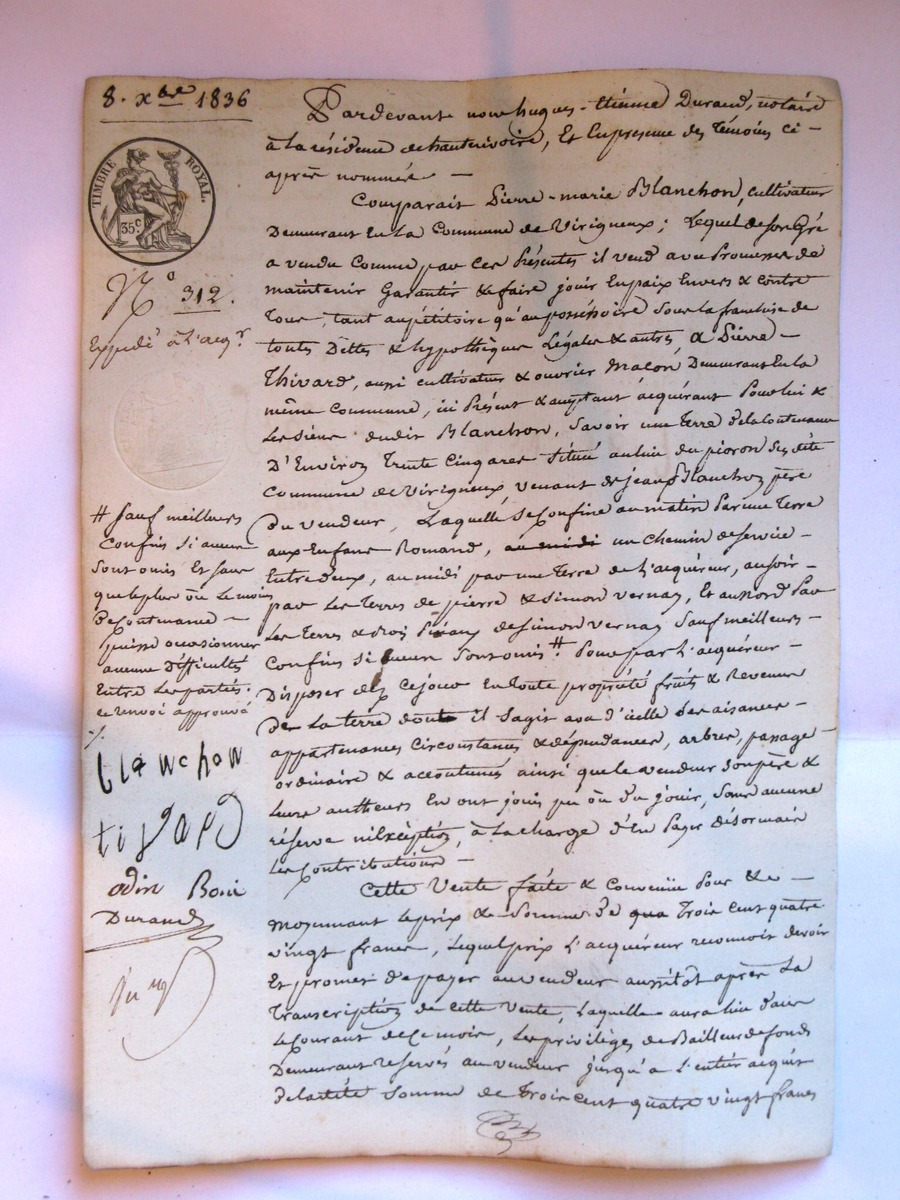 8. Xbre 1836
TIMBRE ROYAL.
35c
No 312.
Expédié à l'acqr
Pardevant nous hugues-étienne Durand, notaire
à la résidence de hauterivoire, Et En presence des Témoins ci-
après nommés —
Comparait Pierre-marie Blanchon, cultivateur
Demeurant En La Commune de Virigneux; Lequel de Son Gré
a vendu comme par ces Présentes il vend avec Promesse de
maintenir Garantir & faire jouir En paix Envers & contre
Tous, tant au pétitoire qu'au possessoire Sous la franchise de
toutes Dettes & hypothèques Légales & autres, a Pierre-
Thivard, aussi cultivateur & ouvrier Maçon, Demeurant En la
même Commune, ici Présent & acceptant acquérant Pour lui &
Les Siens dudit Blanchon, Savoir une Terre de la Contenance
D'Environ Trente Cinq ares Située au lieu du pioron Susdite
Commune de Virigneux, venant de jean Blanchon père
Du vendeur, Laquelle Se Confine au matin Par une Terre
aux Enfans Romand, au midi un chemin de Service -
Entre deux, au midi par une Terre de L'acquéreur, au soir -
par Les Terres de pierre & Simon vernay, Et au nord Par
Les Terres & de Simon vernay Sauf meilleurs -
Confins Si aucun Sont omis # Pour par L'acquéreur -
Disposer dès ce jour En toute propriété fruits & Revenus
De La Terre dont il Sagit avec d'icelle Ses aisances -
appartenances Circonstances & dépendances, arbres, passage -
ordinaire & accoutumés ainsi que le vendeur Son père &
Leurs autheurs En ont jouis pu ou du jouir, Sans aucune
réserve ni Exception, à La charge d'En Payer désormais
Les Contributions —
Cette Vente faite & convenüe Pour & —
Moyennant Le prix & Somme de Trois cent quatre
vingt francs, Lequel prix L'acquéreur reconnoit devoir
Et promet de payer au vendeur aussitot après La
Transcription de cette Vente, Laquelle aura lieu dans
Le Courant de Ce mois, Les privilèges de Bailleur de fonds
Demeurant reservés au vendeur jusqu'a L'entier acquit
De ladite Somme de Trois cent quatre vingt francs
# Sauf meilleurs
Confins Si aucun
Sont omis Et Sans
que le plus ou Le moins
De Contenance -
puisse occasionner
aucune difficultés
Entre Les parties.
ce renvoi approuvé
blanchon
tivard
odin
Durand